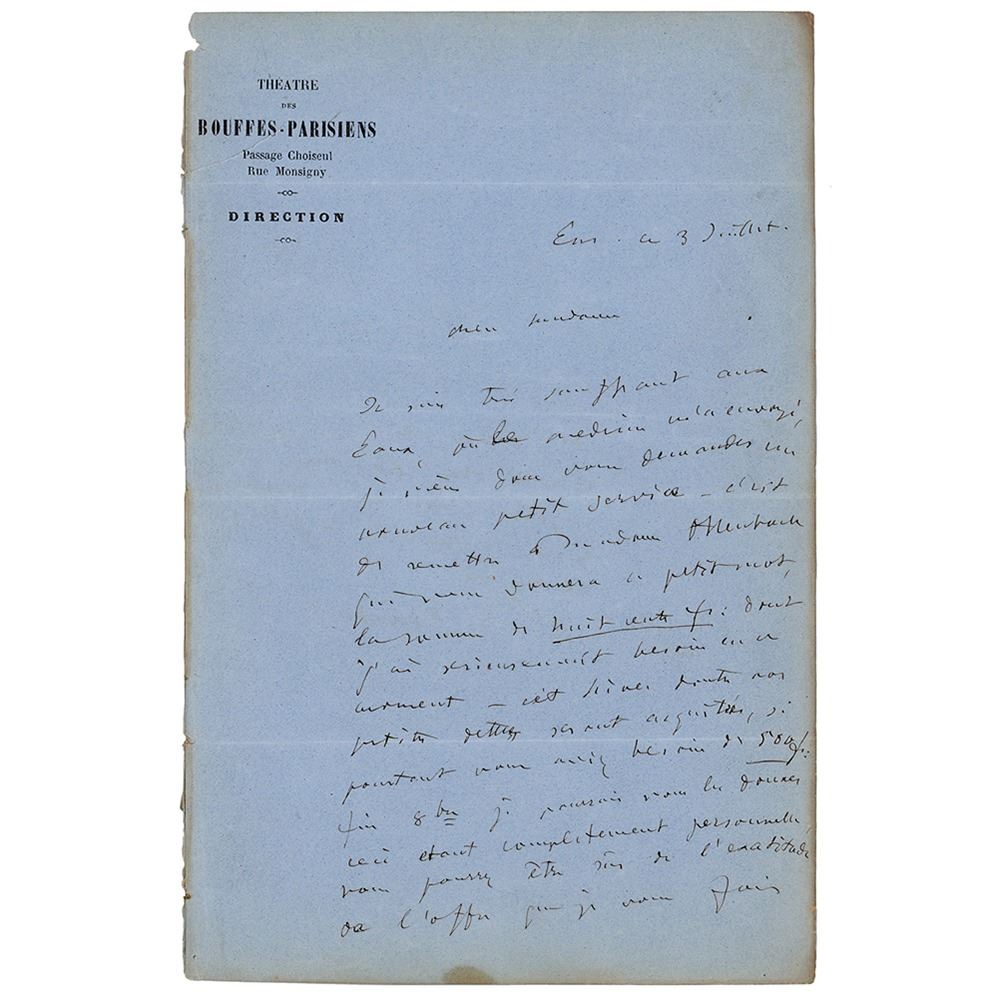 THÉATRE
DES
BOUFFES-PARISIENS
Passage Choiseul
Rue Monsigny
DIRECTION
Ems. ce 3 Juillet.
cher madame
Je suis très souffrant aux
Eaux, où le medecin m'a envoyé,
je viens donc vous demander un
nouveau petit service – c'est
de remettre à Madame Offenbach
qui vous donnera ce petit mot,
la somme de huit cents f: dont
j'ai serieusement besoin en ce
moment – cet hiver toutes vos
petites dettes seront acquittées, si
pourtant vous aviez besoin de 500f:
fin 8bre je pourrais vous les donner
ceci etant completement personnelle,
vous pourrez être sûr de l'exatitude
de l'offre que je vous fais